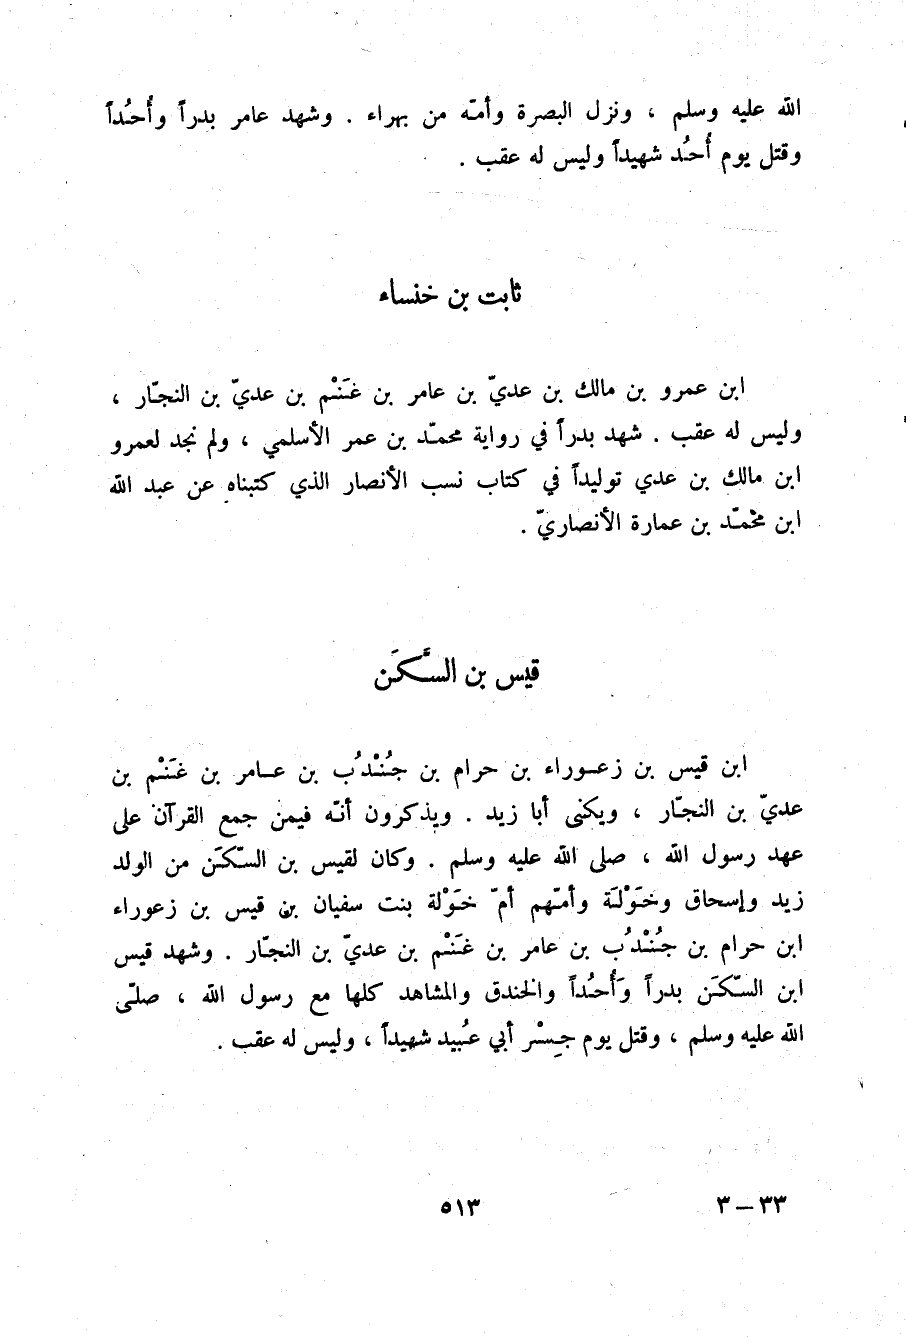 الله عليه وسلم ، ونزل البصرة وأمّه من بهراء . وشهد عامر بدراً وأُحُداً
وقتل يوم أُحُد شهيداً وليس له عقب .
ثابت بن خنساء
ابن عمرو بن مالك بن عديّ بن عامر بن غَنْم بن عديّ بن النجّار ،
وليس له عقب . شهد بدراً في رواية محمّد بن عمر الأسلمي ، ولم نجد لعمرو
ابن مالك بن عدي توليداً في كتاب نسب الأنصار الذي كتبناه عن عبد الله
ابن محمّد بن عمارة الأنصاريّ .
قيس بن السَّكَن
ابن قيس بن زعوراء بن حرام بن جُنْدُب بن عامر بن غَنْم بن
عديّ بن النجّار ، ويكنى أبا زيد . ويذكرون أنّه فيمن جمع القرآن على
عهد رسول الله ، صلى الله عليه وسلم . وكان لقيس بن السّكَن من الولد
زيد وإسحاق وخَوْلَة وأمّهم أمّ خَوْلة بنت سفيان بن قيس بن زعوراء
ابن حرام بن جُنْدُب بن عامر بن غَنْم بن عديّ بن النجّار . وشهد قيس
ابن السّكَن بدراً وَأُحُداً والخندق والمشاهد كلها مع رسول الله ، صلّى
الله عليه وسلم ، وقتل يوم جِسْر أبي عُبيد شهيداً ، وليس له عقب .
٣٣ – ٣ ٥١٣